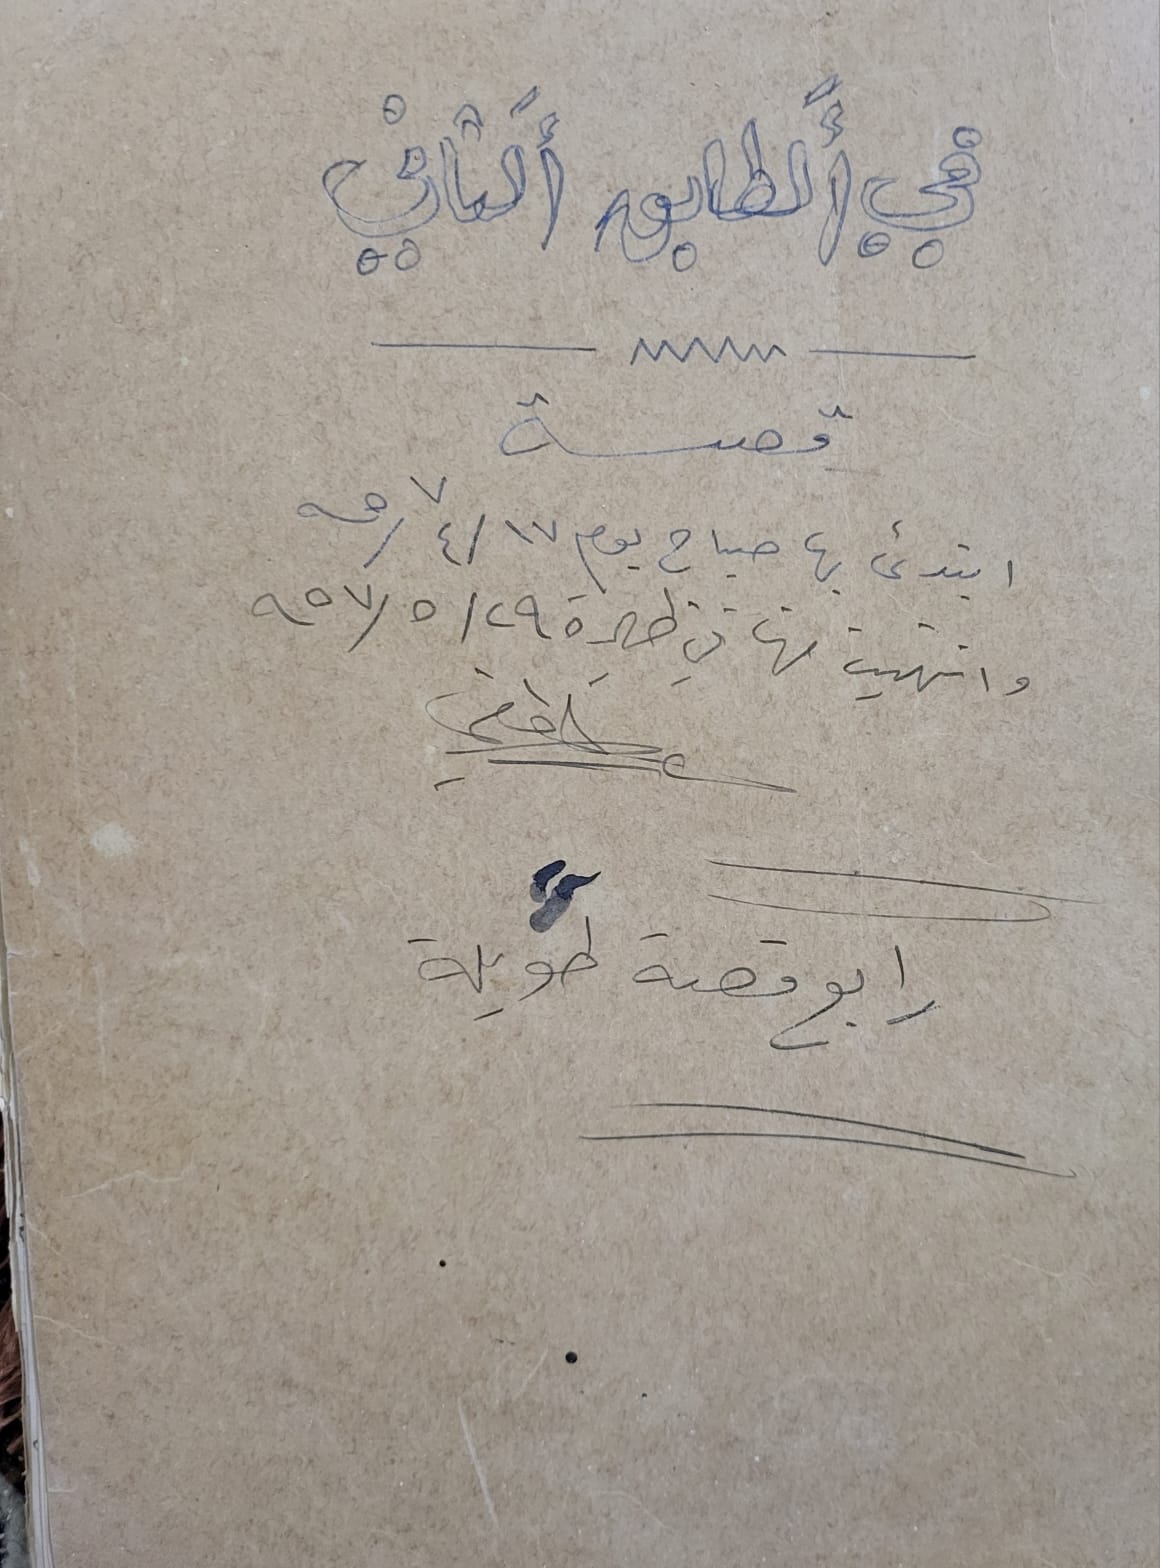 في الطابور الثاني
قصة
ابتدئ بها صباح يوم ١٧/٤/
وانتهيت منها في ظهيرة ٢٩/٥/
رابع قصة طويلة